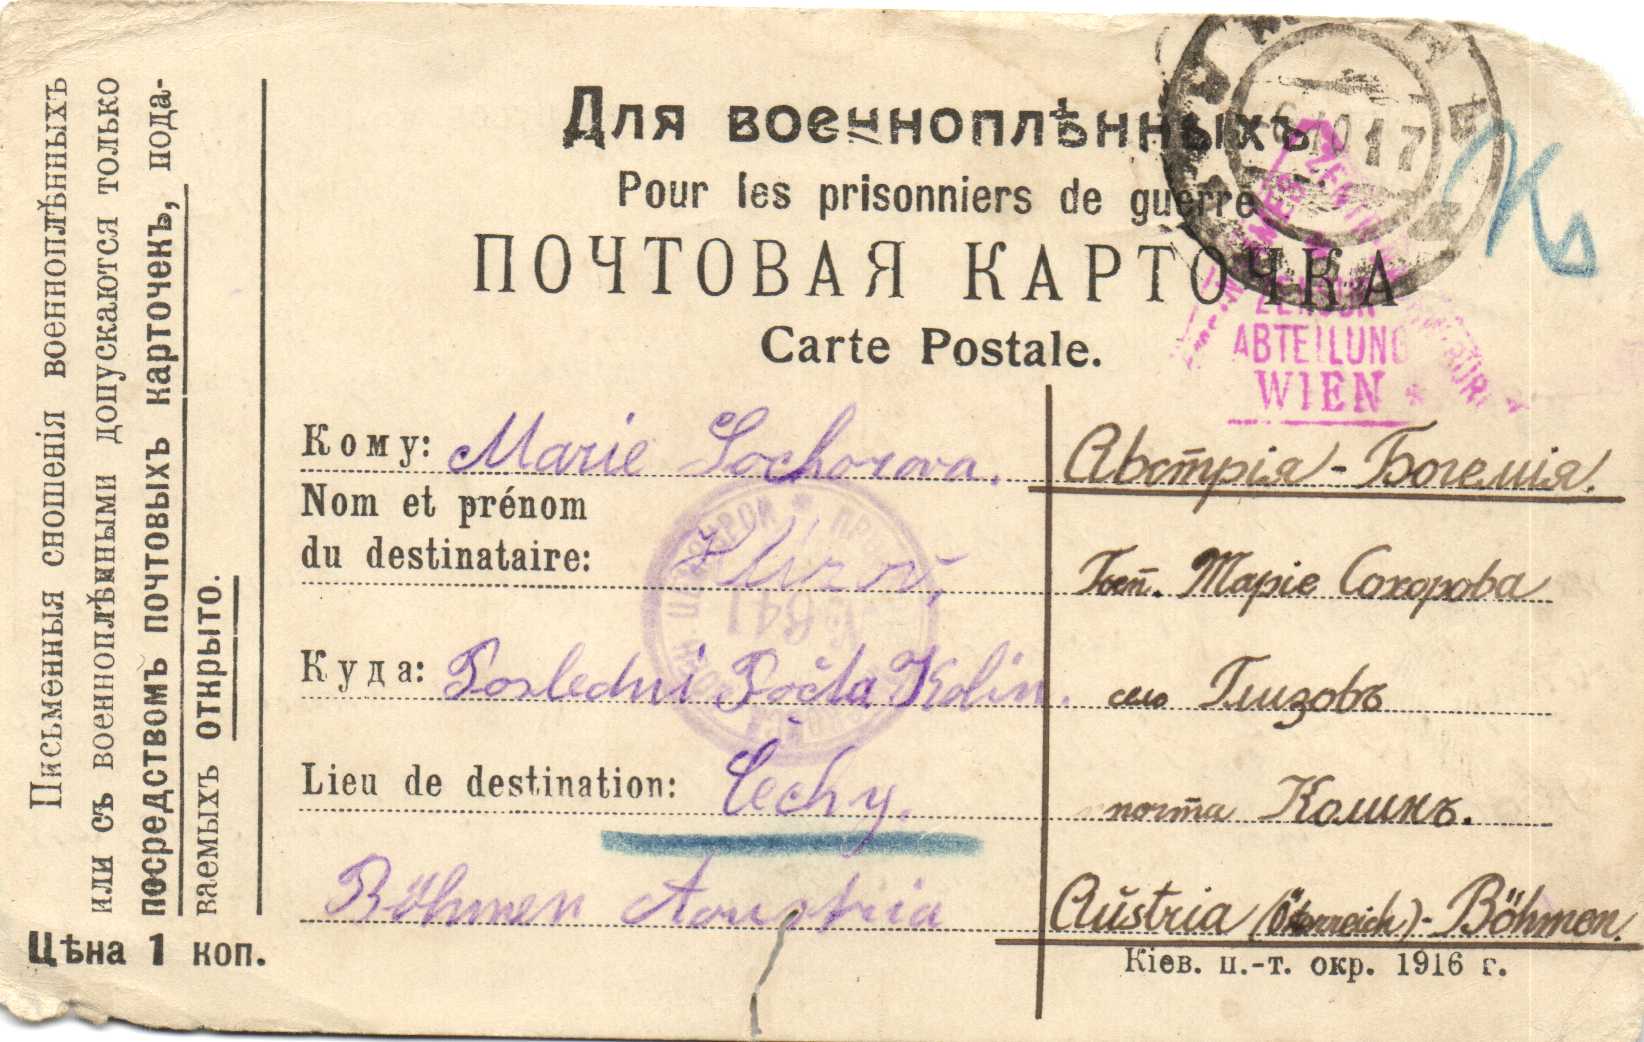 Письменныя сношенія военноплѣнныхъ
или съ военноплѣнными допускаются только
посредствомъ почтовыхъ карточекъ, пода-
ваемыхъ открыто.
Цѣна 1 коп.
Для военноплѣнныхъ
Pour les prisonniers de guerre
ПОЧТОВАЯ КАРТОЧКА
Carte Postale.
6 10 17
Ks
ZENSUR
ABTEILUNG
WIEN
Кому: Marie Sochorova.
Nom et prénom
du destinataire: Hlizov,
Куда: Posledni Počta Kolin.
Lieu de destination: Čechy.
Böhmen Aoustria
641
Австрія - Богемія.
Госп. Маріе Сохорова
село Глизовъ
почта Колинъ.
Aŭstria (Österreich) - Böhmen.
Кіев. п.-т. окр. 1916 г.